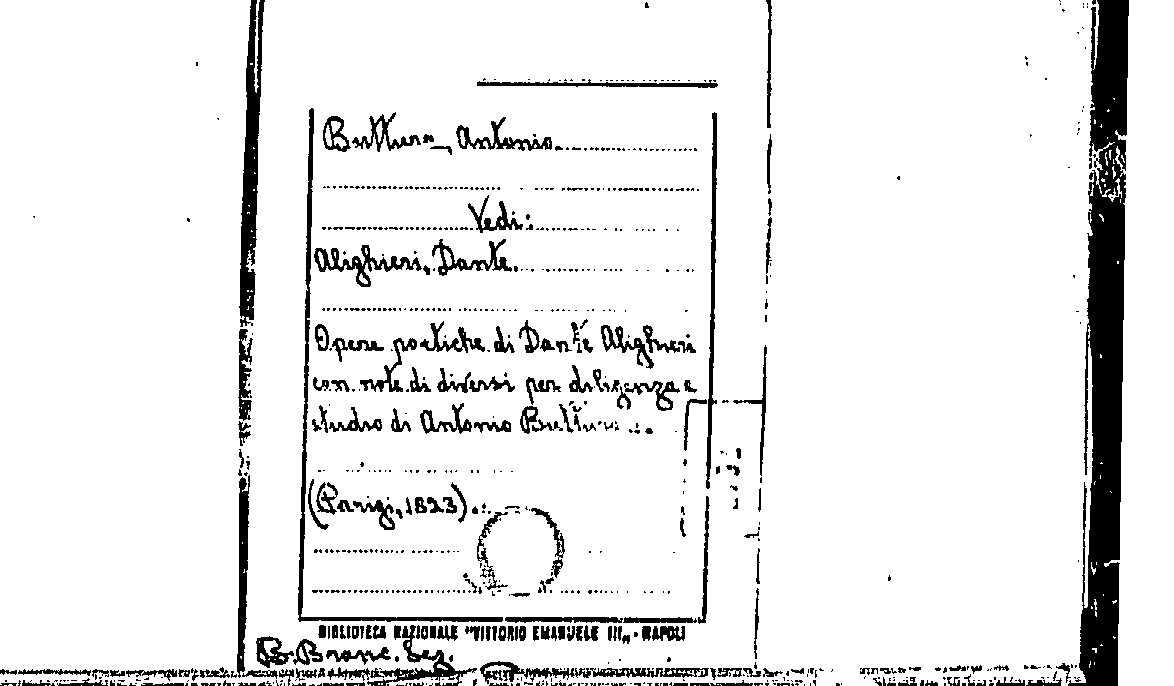 Buttura, Antonio.
Vedi:
Alighieri, Dante.
Opere poetiche di Dante Alighieri
con note di diversi per diligenza e
studio di Antonio Buttura ...
(Parigi, 1823).
BIBLIOTECA NAZIONALE "VITTORIO EMANUELE III„ - NAPOLI
B. Branc. Sez.